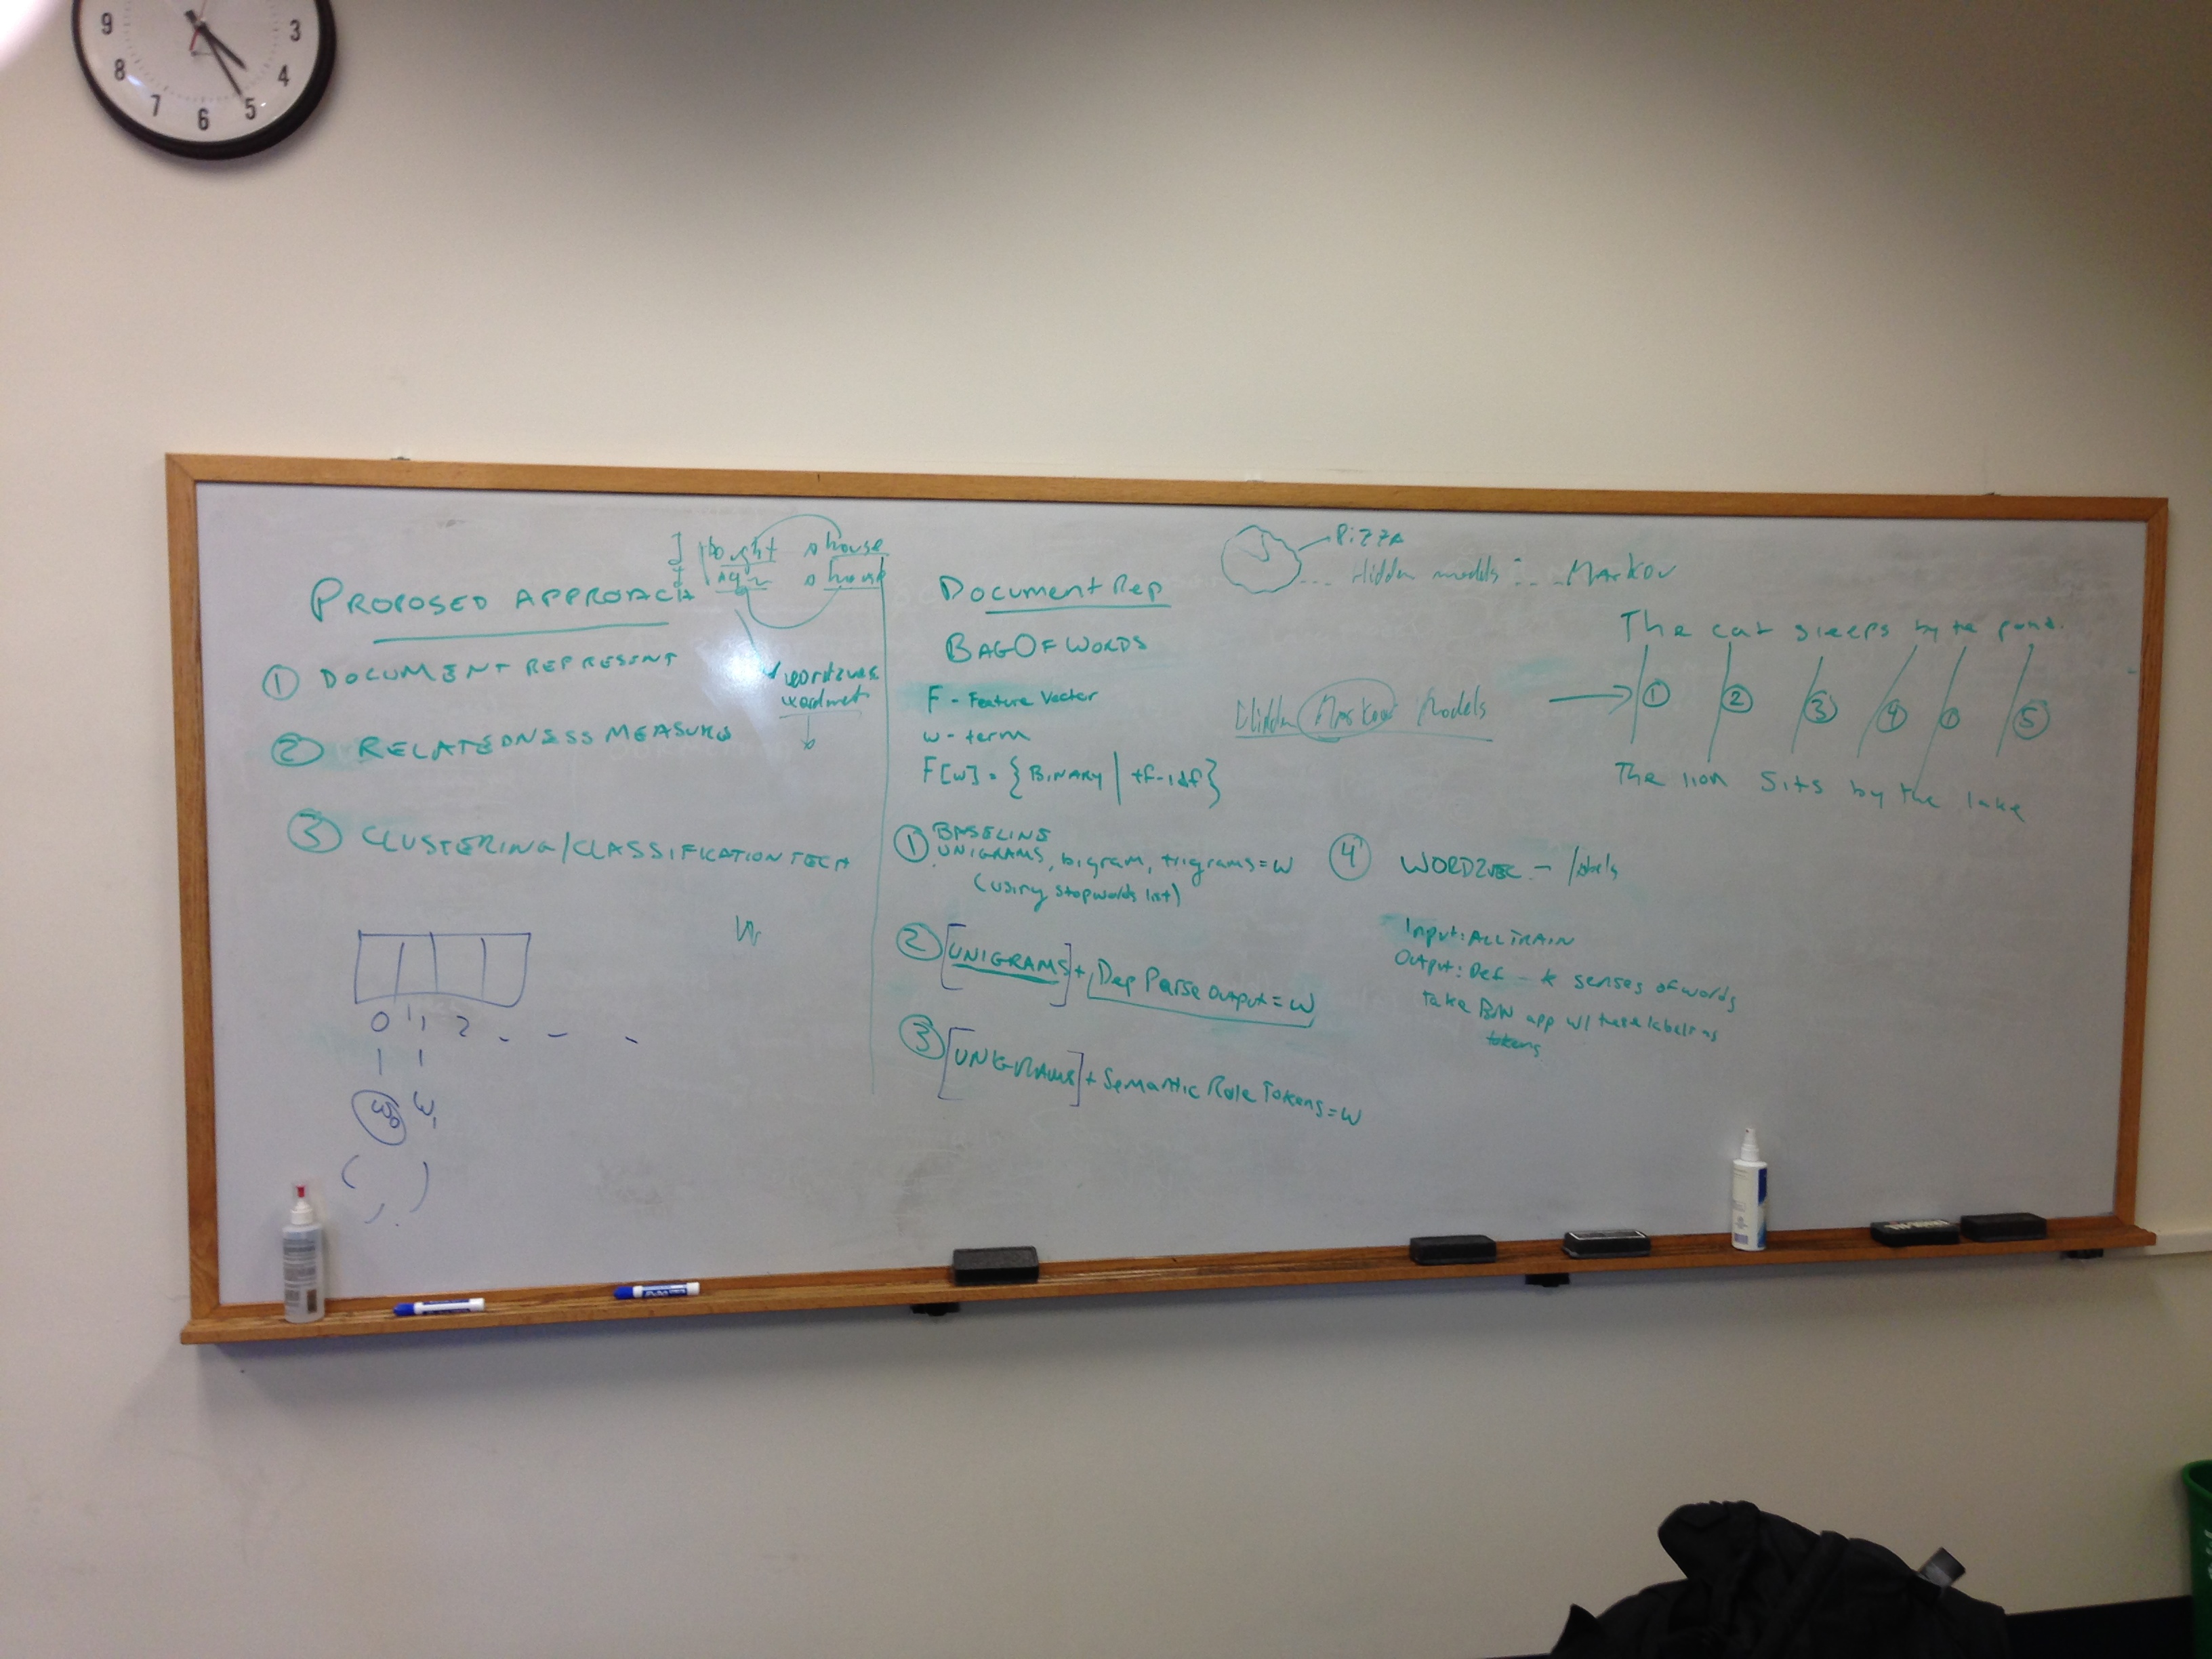 9
3
8
4
7
5
6
I bought a house
I a house
PROPOSED APPROACH
① DOCUMENT REPRESENT
word2vec
wordnet
② RELATEDNESS MEASURES
③ CLUSTERING/CLASSIFICATION TECH
0 1 2 - - -
1 1
W0 W1
( , )
Document Rep
BAG OF WORDS
F - Feature Vector
w - term
F[w] = { BINARY | tf-idf }
① BASELINE
UNIGRAMS, bigram, trigrams = w
(using stopwords list)
② [UNIGRAMS] + Dep Parse Output = w
③ [UNIGRAMS] + Semantic Role Tokens = w
PIZZA
... Hidden models ... Markov
Hidden Markov Models
The cat sleeps by the pond.
① ② ③ ④ ① ⑤
The lion sits by the lake
④ WORD2VEC - labels
Input: ALL TRAIN
Output: Def - k senses of words
take BoW app w/ these labels as
tokens